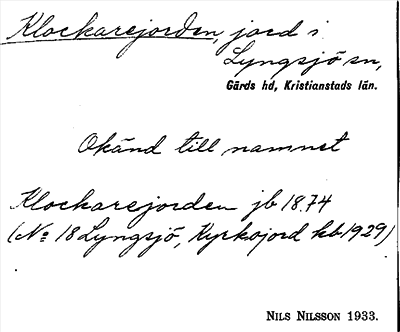 Klockarejorden, jord i
Lyngsjö sn,
Gärds hd, Kristianstads län.
Okänd till namnet
Klockarejorden jb 1874
(No 18 Lyngsjö, Kyrkojord kb 1929)
NILS NILSSON 1933.